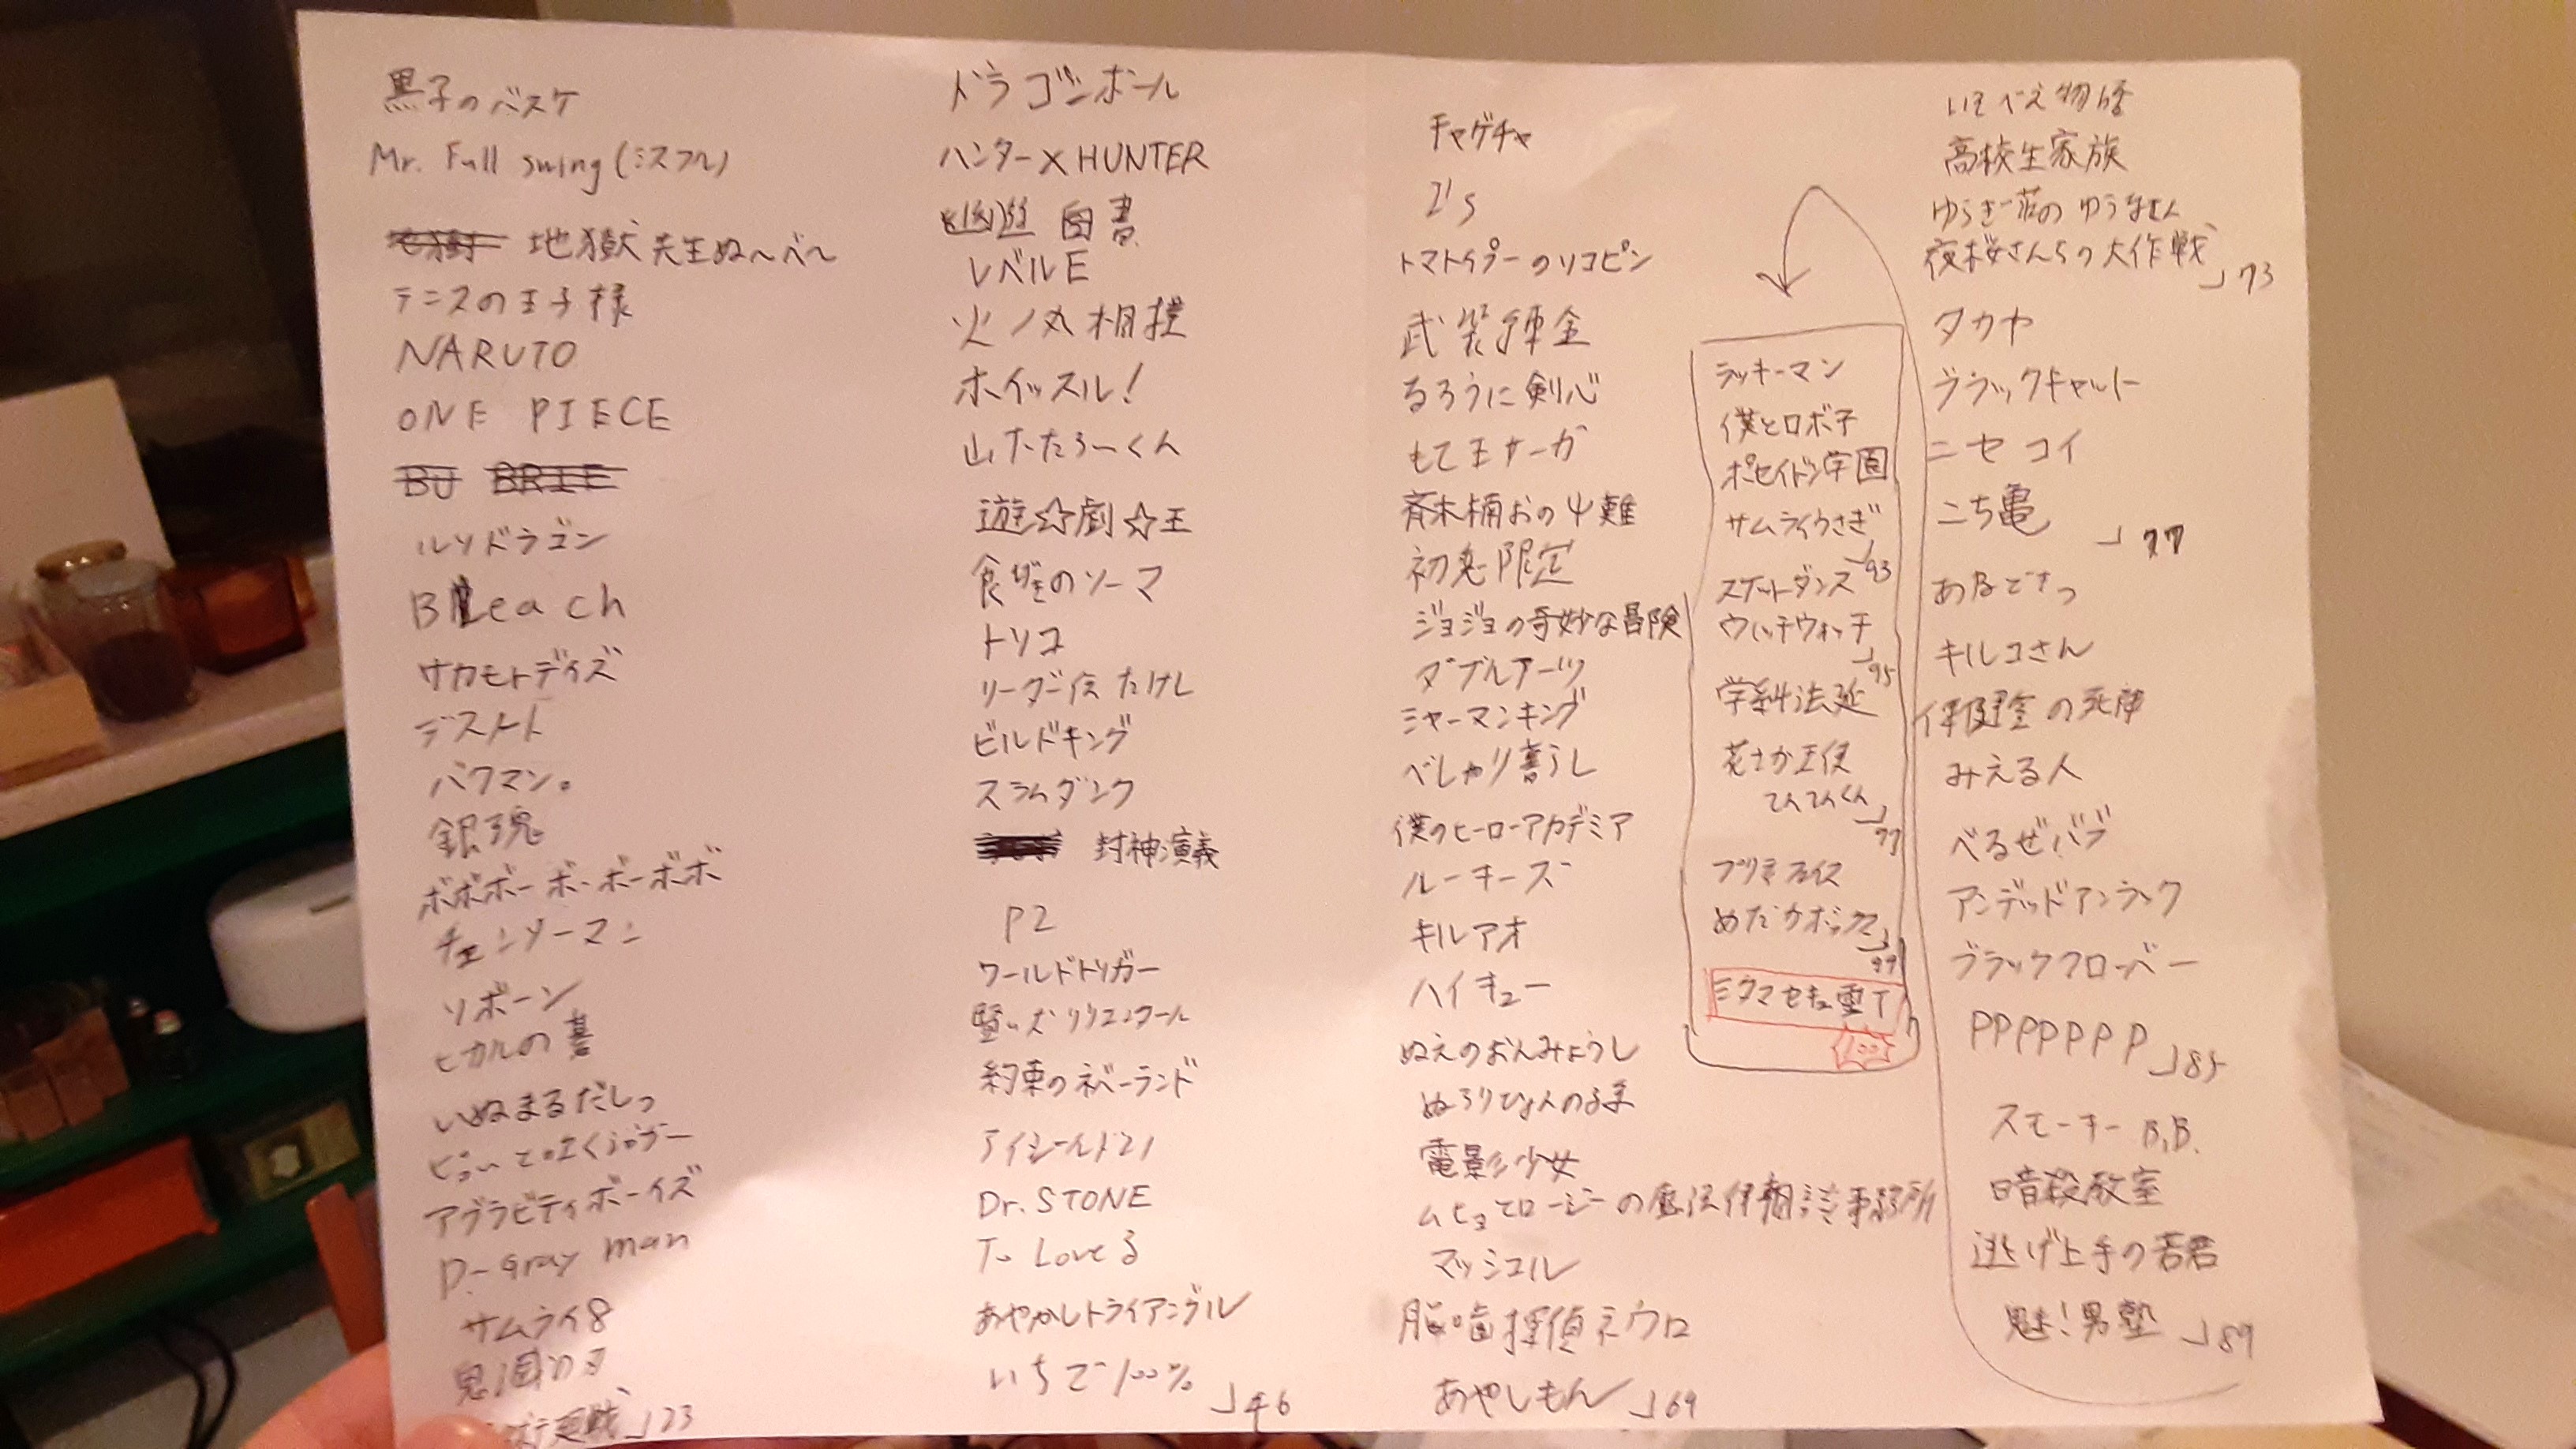 黒子のバスケ
Mr. Full swing (ミスフル)
地獄先生ぬ〜べ〜
テニスの王子様
NARUTO
ONE PIECE
BU BRIE
ルリドラゴン
BLeach
サカモトデイズ
デスノート
バクマン。
銀魂
ボボボーボ・ボーボボ
チェンソーマン
リボーン
ヒカルの碁
いぬまるだしっ
アグラビティボーイズ
D-Gray man
サムライ8
鬼滅の刃
廻戦 」23
ドラゴンボール
ハンター×HUNTER
幽遊白書
レベルE
火ノ丸相撲
ホイッスル!
山大たろーくん
遊☆戯☆王
食戟のソーマ
トリコ
リーダー伝たけし
ビルドキング
スラムダンク
封神演義
P2
ワールドトリガー
賢い犬リリエンタール
約束のネバーランド
アイシールド21
Dr. STONE
To Loveる
あやかしトライアングル
いちご100% 」46
チャゲチャ
I's
トマトイプーのリコピン
武装錬金
るろうに剣心
もて王サーガ
斉木楠おのΨ難
初恋限定
ジョジョの奇妙な冒険
ダブルアーツ
シャーマンキング
べしゃり暮らし
僕のヒーローアカデミア
ルーキーズ
キルアオ
ハイキュー
ぬえのおんみょうじ
ぬらりひょんの孫
電影少女
ムヒョとロージーの魔法律相談事務所
マッシュル
脳噛探偵ネウロ
あやしもん 」69
ラッキーマン
僕とロボ子
ポセイドン学園
サムライうさぎ 」93
スケットダンス
ウィッチウォッチ 」95
学糾法廷
花さか天使
てんてんくん 」97
プリティフェイス
めだかボックス 」99
ミウマセキュ霊T
100
いそべえ物語
高校生家族
ゆらぎ荘のゆうなさん
夜桜さんちの大作戦 」73
タカヤ
ブラックキャット
ニセコイ
こち亀 」77
あねどきっ
キルコさん
保健室の死神
みえる人
べるぜバブ
アンデッドアンラック
ブラッククローバー
PPPPPPP 」85
スモーキーB.B.
暗殺教室
逃げ上手の若君
魁!男塾 」89